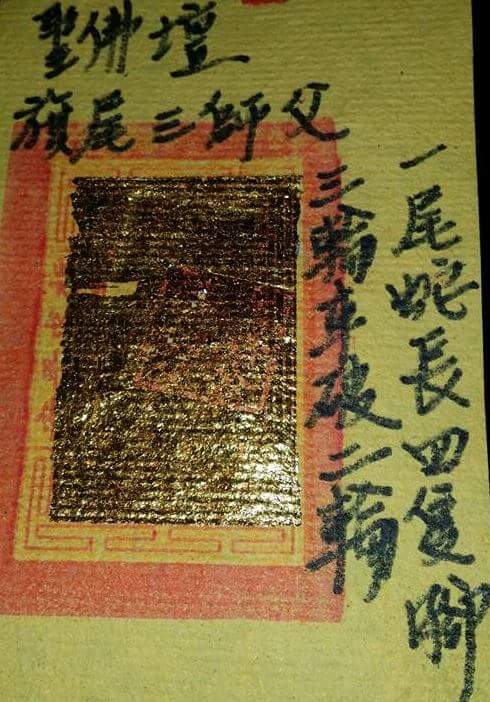 聖佛壇
旗尾三師父
一尾蛇長四隻腳
三輪車破二輪